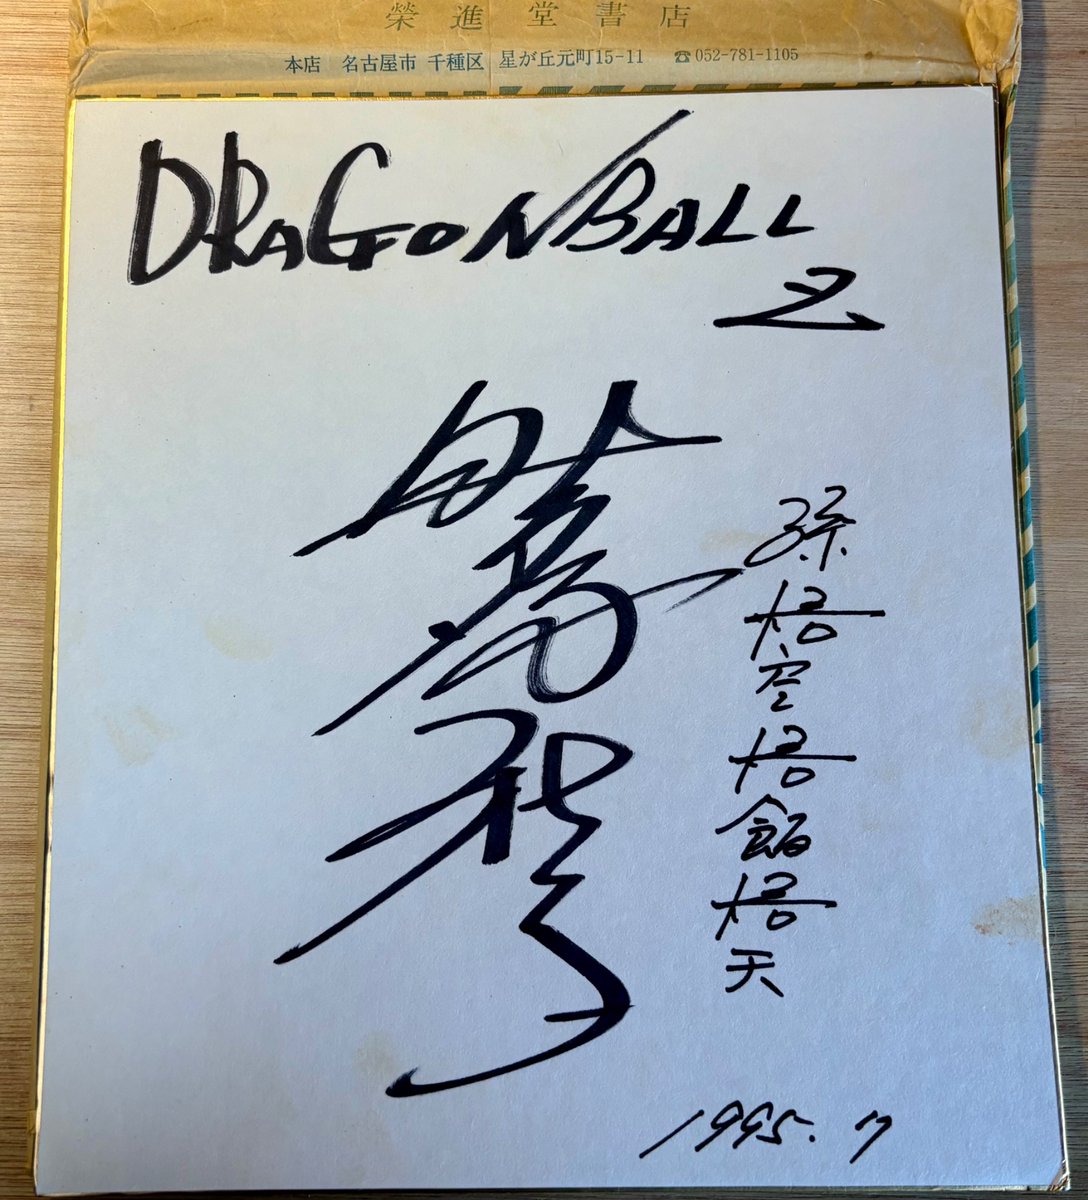 榮進堂書店
本店 名古屋市 千種区 星が丘元町15-11 ☎052-781-1105
DRAGONBALL
Z
孫悟空悟飯悟天
1995. 7